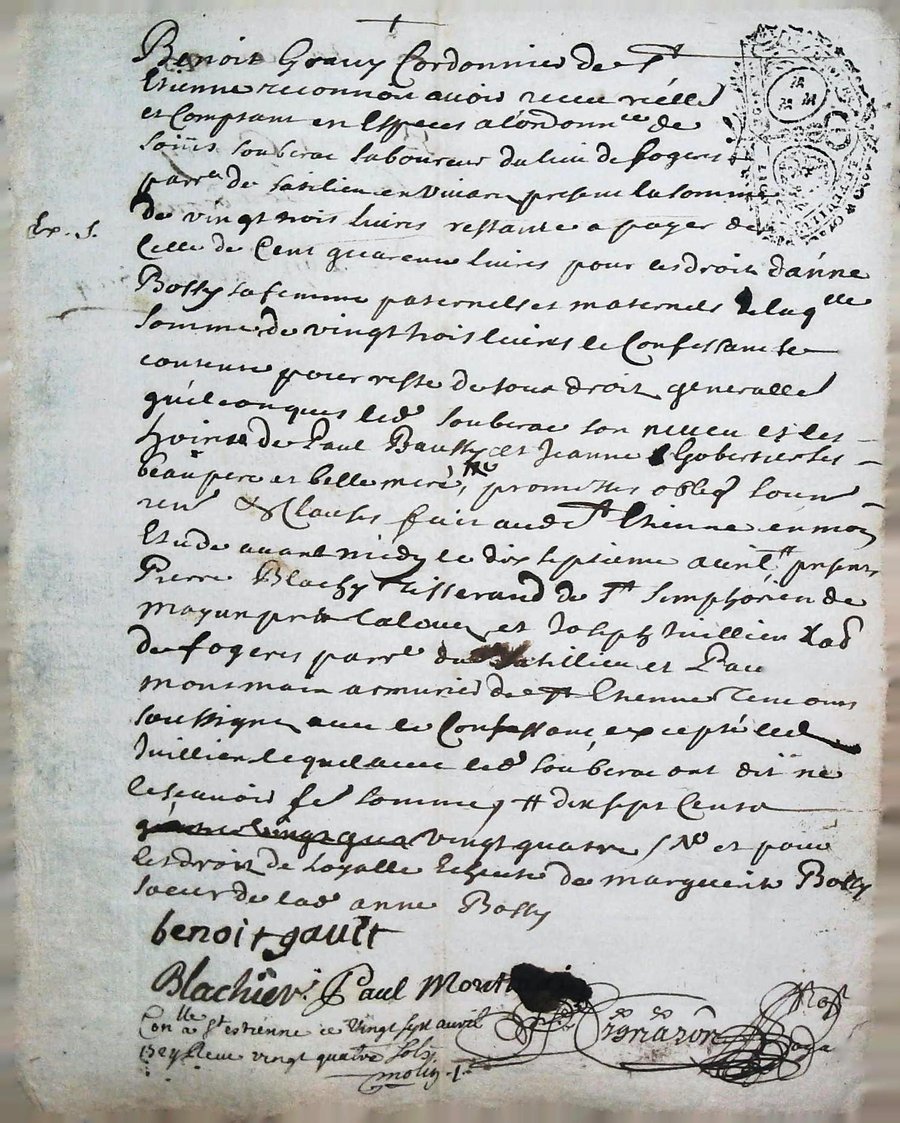 Benoit Grauy Cordonnier de St
Etienne reconnoit avoir receu réélle
et Comptant en Especes a lordonnce de
souberac laboureur du lieu de fogeres
parre de satilieu en vivarez present la somme
de vingt trois livres restante a payer de
Celle de Cent quarente livres pour les droit danne
Bossy sa femme paternels et maternels de laqlle
somme de vingt trois livres le Confessant se
contente pour reste de tous droit generalles
quelconques led souberac son neveu et les
hoirs de Paul Baussy et Jeanne ses
beaupere et belle mere, promettes oblig soum
ren & Clauses fait aud St Etienne en mon
Etude avant midy le dix septieme avril present
Pierre Blachy tisserand de St Simphorien de
mayun pres lalouve et Joseph Juillien
de fogeres parre du satilieu et Paul
montmain armurier de St Etienne temoins
soussignes avec le Confessant excepté led
Juillien lequel avec led souberac ont dit ne
le scavoir fe somme q dix sept Cents
vingt quatre et pour
les droit de loyalle de marguerite Bossy
soeur de lad anne Bossy
benoit gault
Blachier Paul Mont
Conlle a St estienne ce vingt sept avril
1724 Receu vingt quatre sols